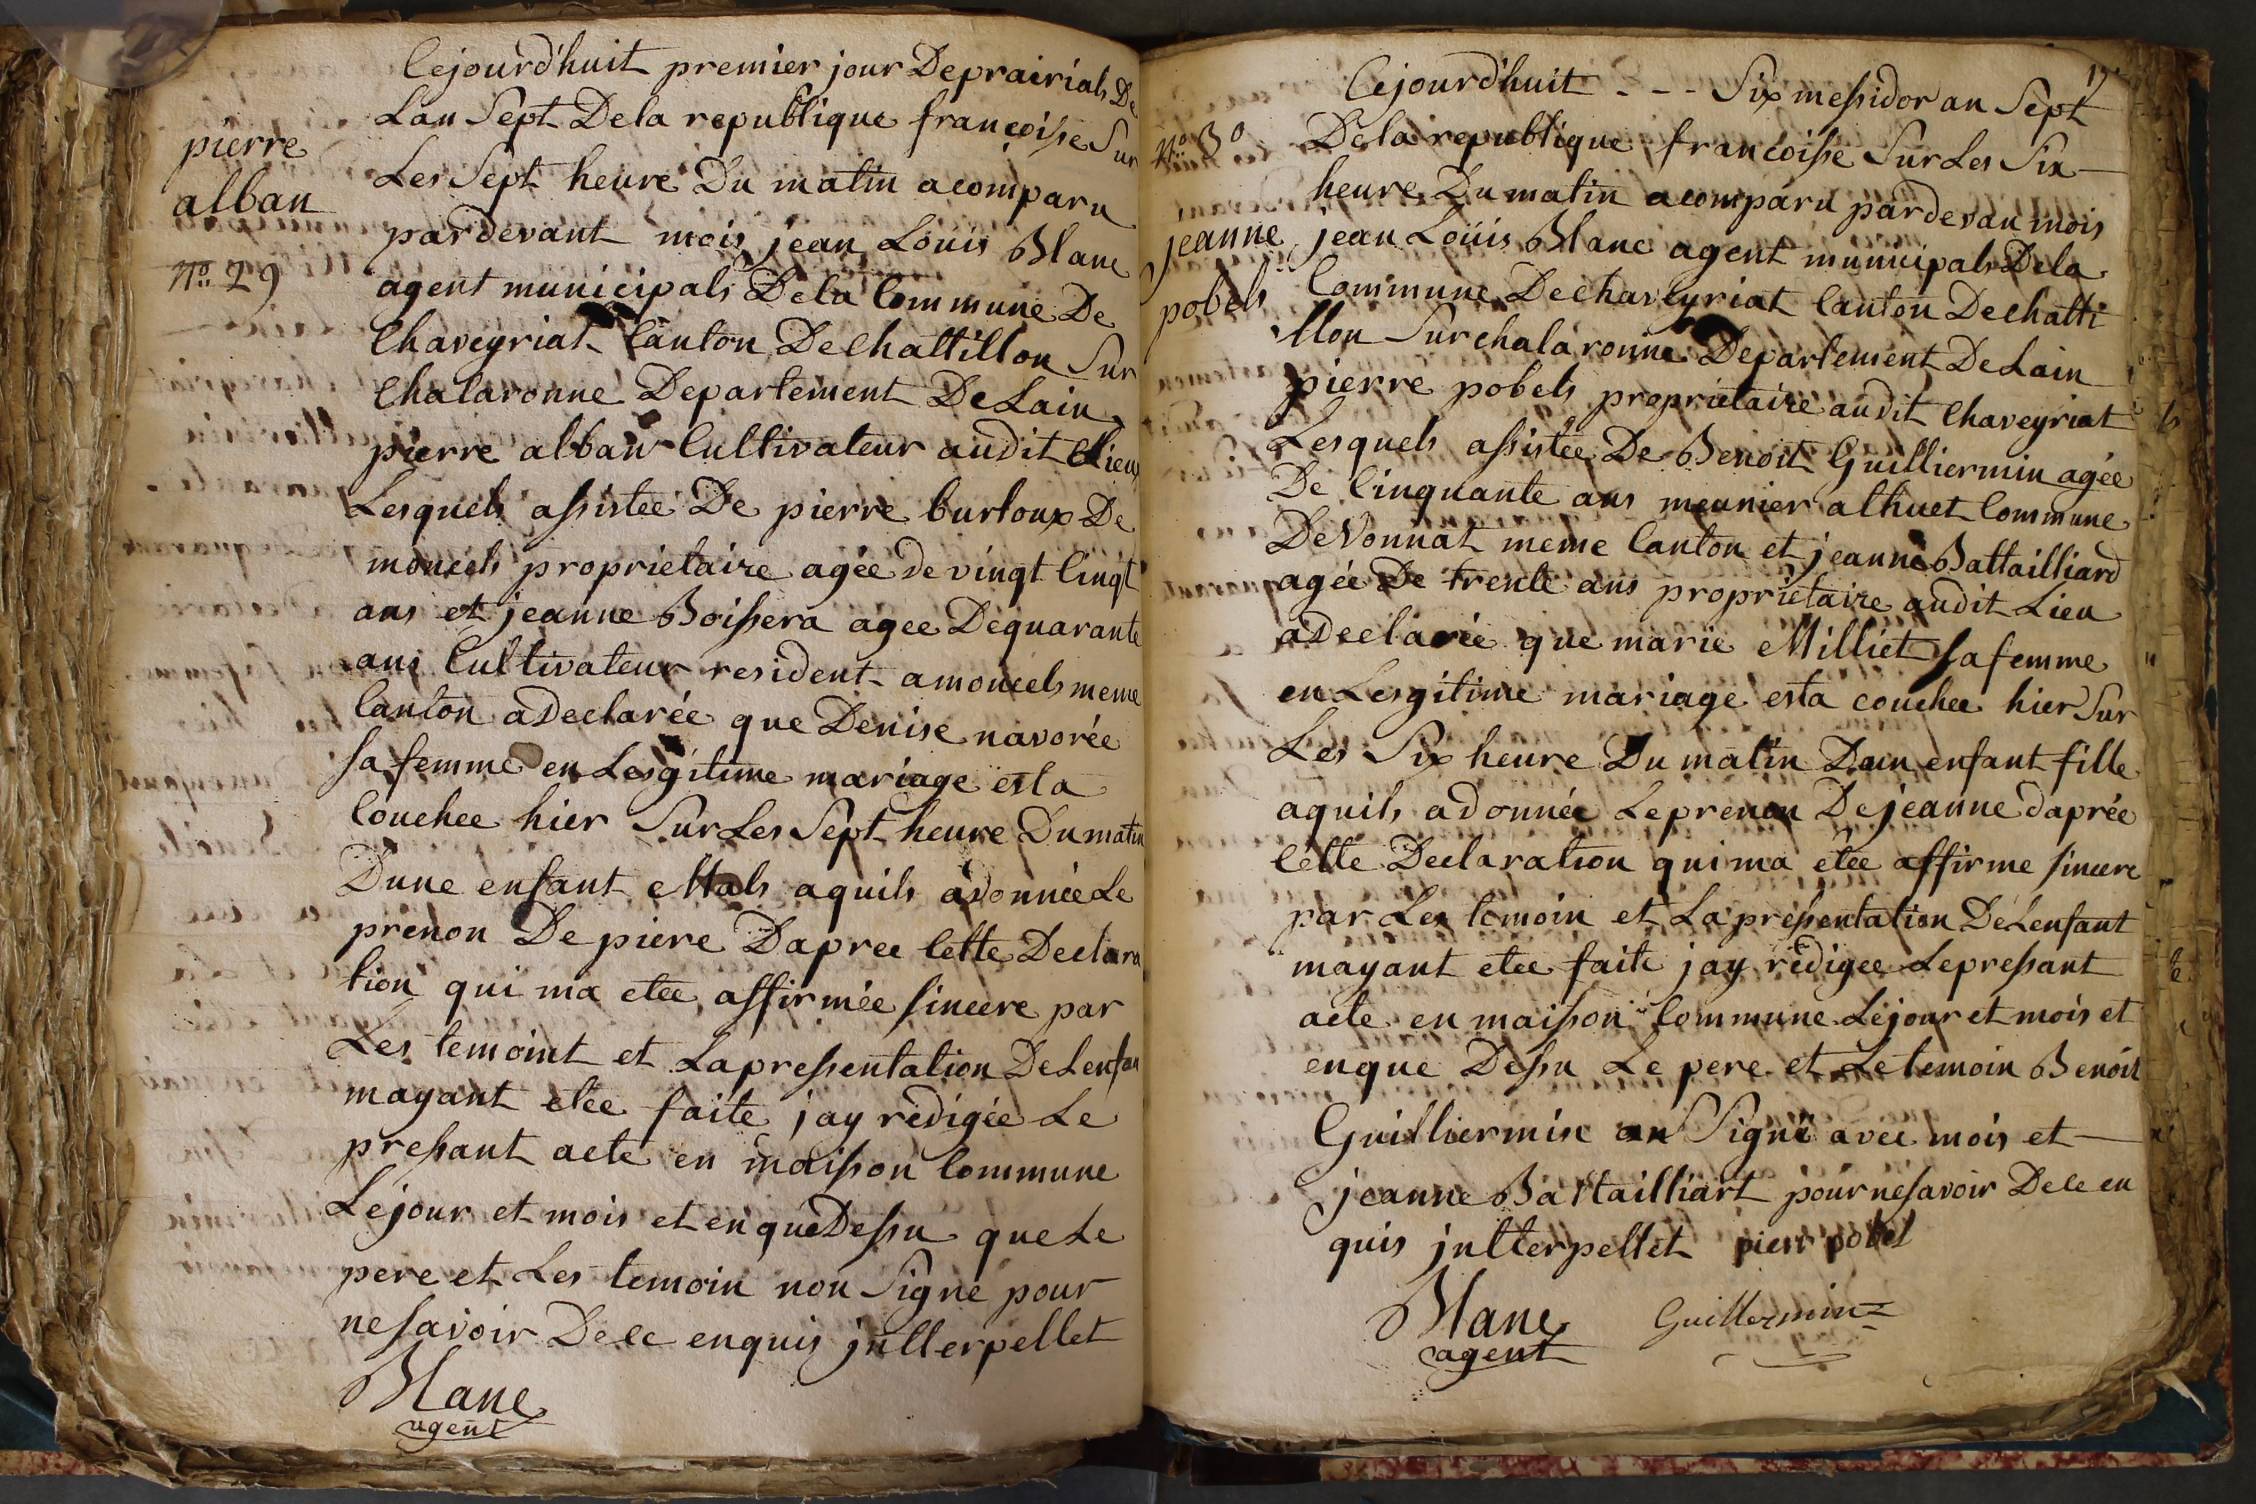 Cejourd'huit premier jour De prairials De
Lan Sept De la republique françoisse Sur
Les Sept heure Du matin a comparu
par devant mois jean Louis Blanc
agent municipals De la Commune De
Chaveyriat Canton De Chattillon Sur
Chalaronne Departement De Lain
pierre alban Cultivateur au dit Lieux
Lesquels assistée De pierre burtoux De
moncels proprietaire agée de vingt Cinqt
ans et jeanne Boissera agee De quarante
ans Cultivateur resident a moncels meme
Canton a Declarée que Denise navorée
sa femme en Lesgitime mariage est a
Couchee hier Sur Les Sept heure Du matin
Dune enfant Mals a quils a donnée Le
prenon De piere Dapree Cette Declara
tion qui ma etee affirmée sincere par
Les temoint et La pressentation De Lenfan
mayant etee faite jay redigée Le
pressant acte en maisson Commune
Le jour et mois et en que Dessu que Le
pere et Les temoin non Signe pour
ne savoir De ce enquis jntterpellet
Blanc
agent
pierre
alban
No. 29
17
Cejourd'huit - - - Six messidor an Sept
De la republique françoisse Sur Les Six
heure Du matin a comparu par devau mois
jean Loüis Blanc agent municipals De la
Commune De chaveyriat Canton De chatti
llon Sur chalaronne Departement De Lain
pierre pobels proprietaire au dit Chaveyriat
Lesquels assistée De Benoit Guilliermin agée
De Cinquante ans meunier a thuet Commune
De Vonnat meme Canton et jeanne Battailliard
agée De trente ans proprietaire au dit Lieu
a Declarée que marie Milliet sa femme
en Lesgitime mariage est a couchee hier Sur
Les Six heure Du matin Dun enfant fille
a quils a donnée Le prenon De jeanne daprée
Cette Declaration qui ma etee affirme sincere
par Les temoin et La pressentation De Lenfant
mayant etee faite jay redigee Le pressant
acte en maisson Commune Le jour et mois et
en que Dessu Le pere et Le temoin Benoit
Guilliermin an Signé avec mois et
jeanne Battailliart pour ne savoir De ce en
quis jntterpellet pierr pobel
Blanc Guillermin
agent
No. 30
jeanne
pobels